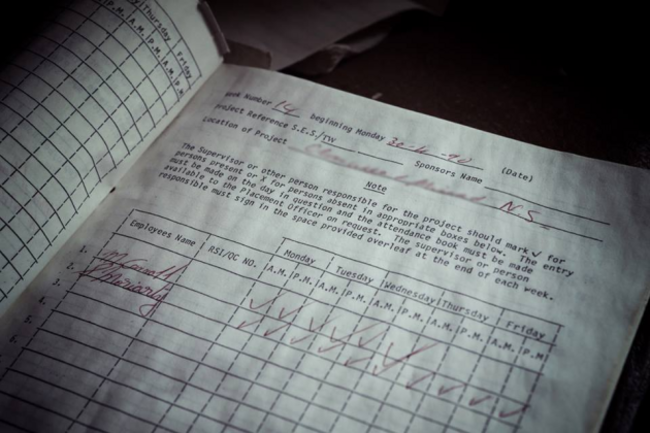 Thursday Friday
P.M. A.M. P.M. A.M. P.M.
Week Number 14 beginning Monday (Date)
Project Reference S.E.S/TW Sponsors Name
Location of Project N.S.
Note
The Supervisor or other person responsible for the project should mark ✓ for
persons present or X for persons absent in appropriate boxes below. The entry
must be made on the day in question and the attendance book must be made
available to the Placement Officer on request. The supervisor or person
responsible must sign in the space provided overleaf at the end of each week.
Employees Name RSI/OC NO. Monday Tuesday Wednesday Thursday Friday
A.M. P.M. A.M. P.M. A.M. P.M. A.M. P.M. A.M. P.M.
1. ✓ ✓ ✓ ✓ ✓ ✓
2.
3.
4.
5.
6.